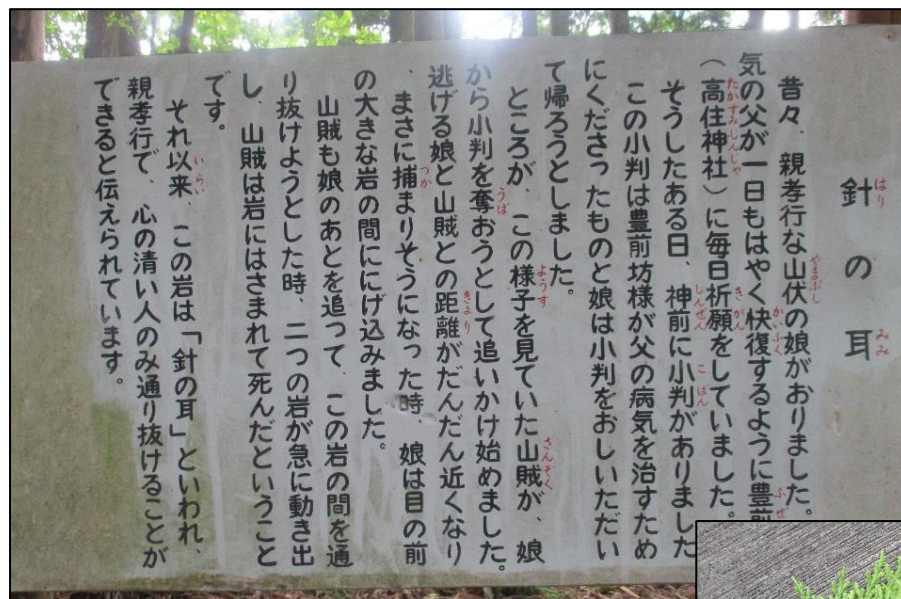 はり　みみ
針の耳
やまぶし
昔々、親孝行な山伏の娘がおりました。
かいふく
気の父が一日もはやく快復するように豊前
たかすみじんじゃ　きがん
（高住神社）に毎日祈願をしていました。
しんぜん　こはん
そうしたある日、神前に小判がありました
この小判は豊前坊様が父の病気を治すため
にくださったものと娘は小判をおしいただい
て帰ろうとしました。
ようす　さんそく
ところが、この様子を見ていた山賊が、娘
うば
から小判を奪おうとして追いかけ始めました。
きょり
逃げる娘と山賊との距離がだんだん近くなり
つか
、まさに捕まりそうになった時、娘は目の前
の大きな岩の間ににげ込みました。
山賊も娘のあとを追って、この岩の間を通
り抜けようとした時、二つの岩が急に動き出
し、山賊は岩にはさまれて死んだということ
です。
いらい
それ以来、この岩は「針の耳」といわれ、
親孝行で、心の清い人のみ通り抜けることが
できると伝えられています。